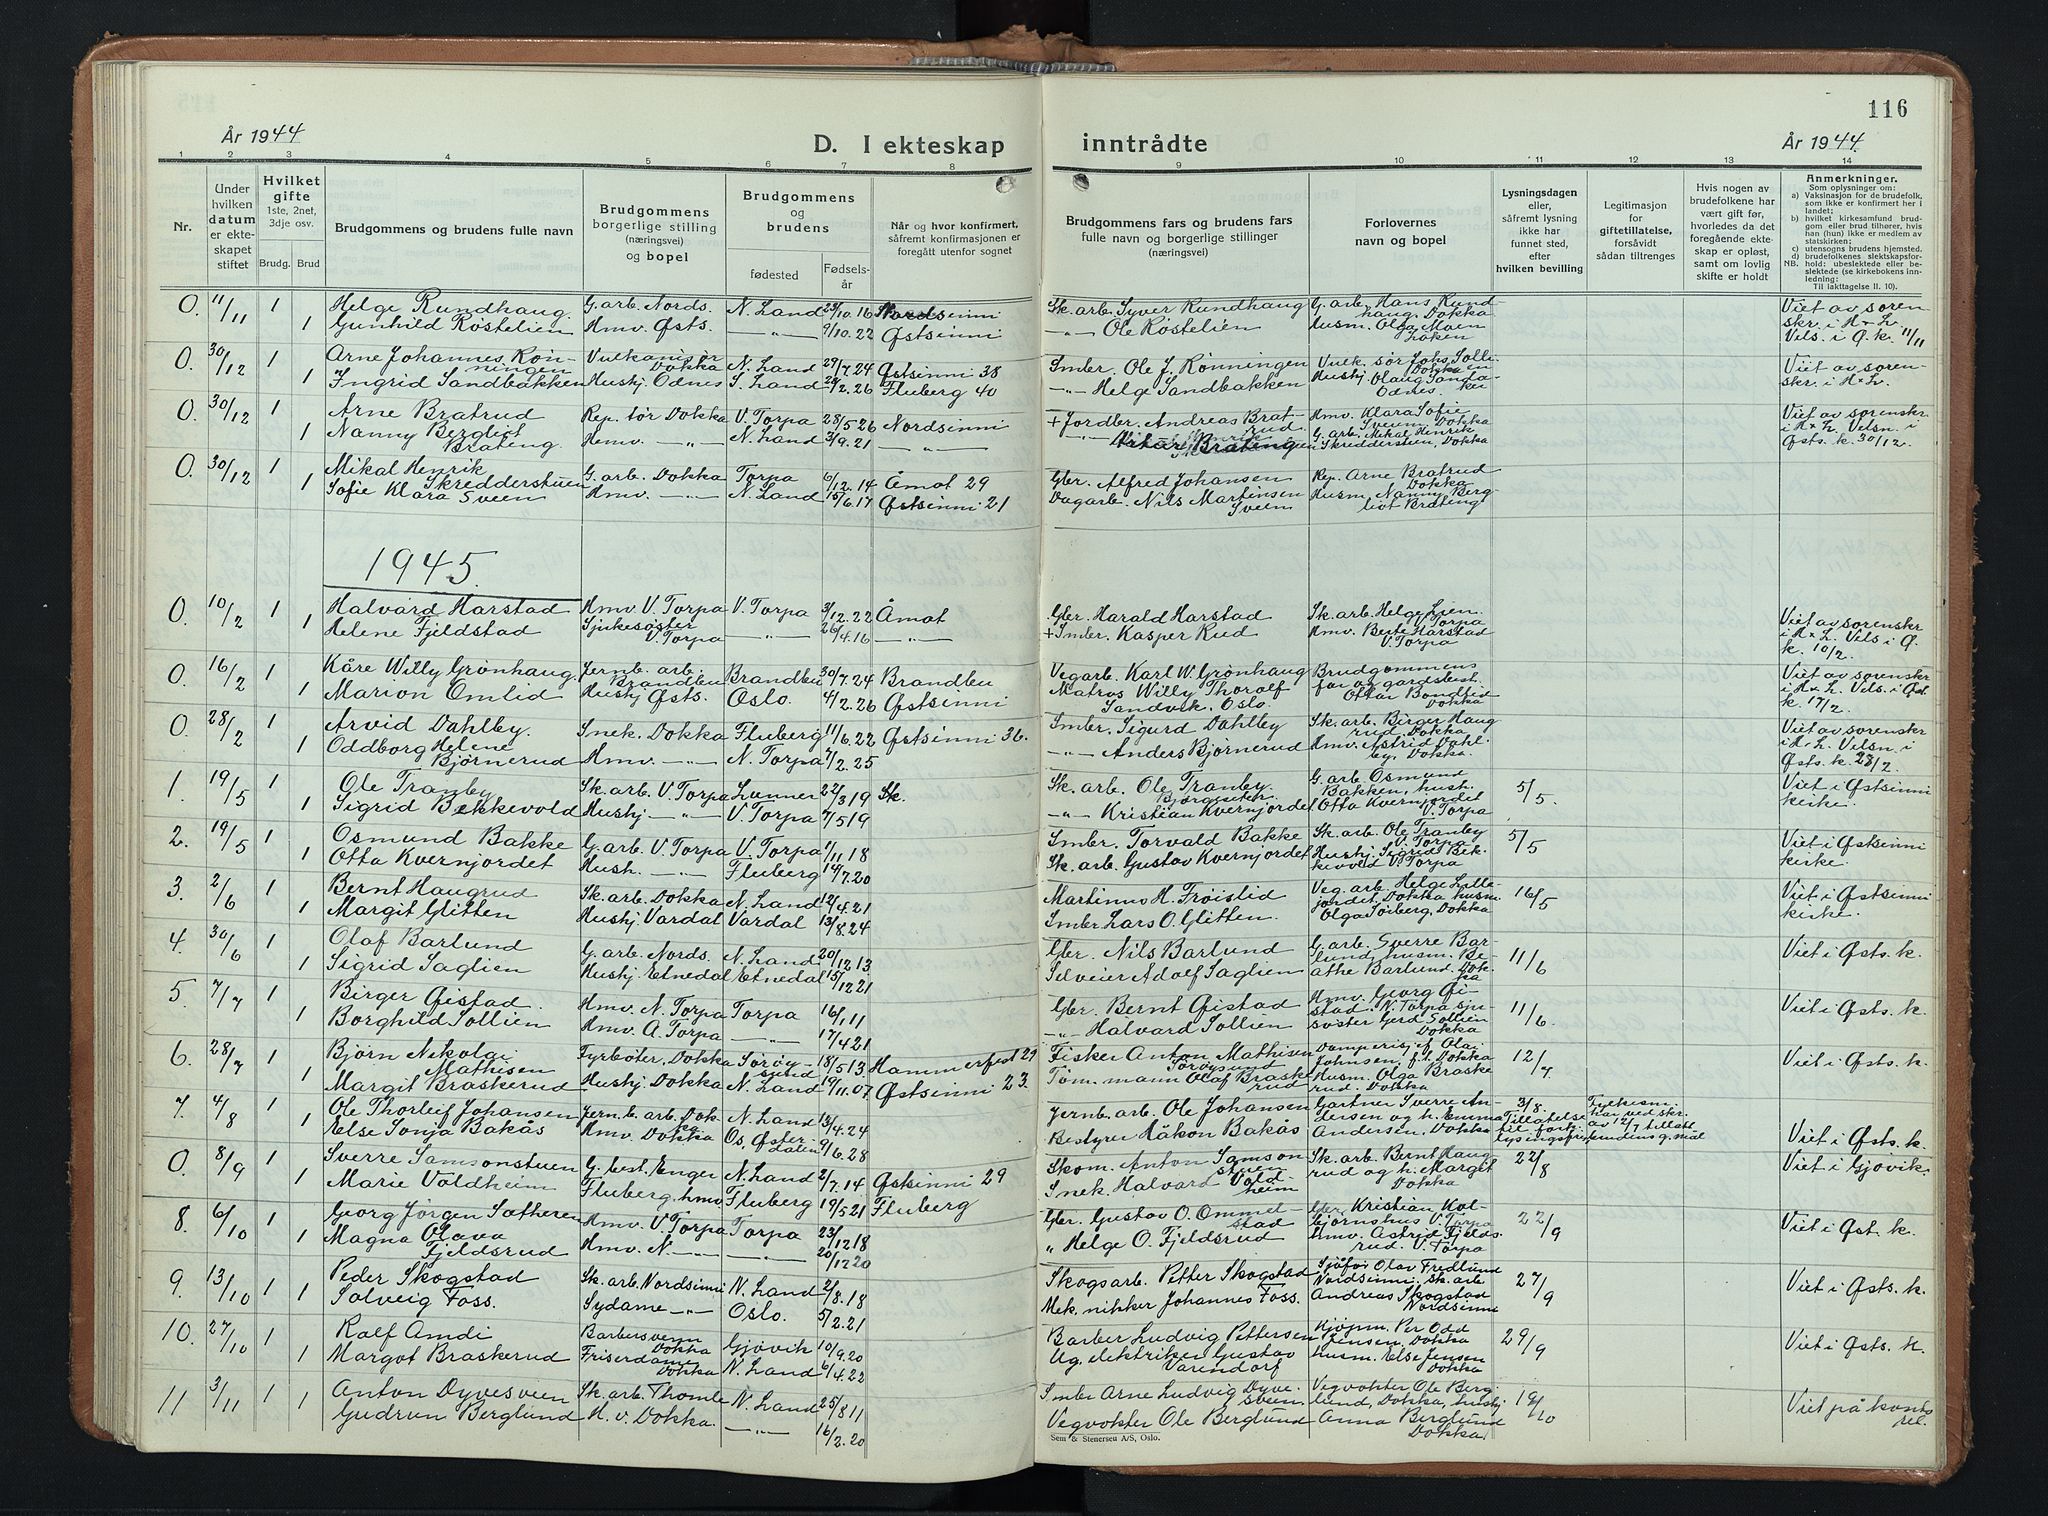 116
År 1944
D. I ekteskap
inntrådte
År 1944
1 2 3 4 5 6 7 8 9 10 11 12 13 14
Nr.
Under hvilken datum er ekteskapet stiftet
Hvilket gifte 1ste, 2net, 3dje osv.
Brudg. Brud
Brudgommens og brudens fulle navn
Brudgommens borgerlige stilling (næringsvei) og bopel
Brudgommens og brudens
fødested
Fødselsår
Når og hvor konfirmert, såfremt konfirmasjonen er foregått utenfor sognet
Brudgommens fars og brudens fars fulle navn og borgerlige stillinger (næringsvei)
Forlovernes navn og bopel
Lysningsdagen eller, såfremt lysning ikke har funnet sted, efter hvilken bevilling
Legitimasjon for giftetillatelse, forsåvidt sådan tiltrenges
Hvis nogen av brudefolkene har vært gift før, hvorledes da det foregående ekteskap er opløst, samt om lovlig skifte er holdt
Anmerkninger.
Som oplysninger om:
a) Vaksinasjon for de brudefolk, som ikke er konfirmert her i landet;
b) hvilket kirkesamfund brudgom eller brud tilhører, hvis han (hun) ikke er medlem av statskirken;
c) utensogns brudens hjemsted.
d) brudefolkenes slektskapsforhold: ubeslektede eller beslektede (se kirkebokens innledning:
NB. Til iakttagelse II. 10).
0. 11/11 1 Helge Rundhaug G. arb. Nords. N. Land 10.16 Nordsinni Sk. arb. Syver Rundhaug G. arb. Hans Rundhaug. Dokka Viet av sorenskr. i H & L.
1 Gunhild Røstelien Hmv. Østs. —"— 9/10.22 Østsinni —"— Ole Røstelien Husm. Olga Moen Løken Vels. i Ø. k. 11/11
0. 30/12 1 Arne Johannes Rønningen Vulkanisør Dokka N. Land 29/7.24 Østsinni 38 Smbr. Ole J. Rønningen Vulk. sør Johs. Sollien Dokka Viet av sorenskr. i H & L.
1 Ingrid Sandbakken Hushj. Odnes S. Land 2.26 Fluberg 40 —"— Helge Sandbakken Hushj. Olaug Sandbakken Odnes
0. 30/12 1 Arne Bratrud Rep. tør Dokka V. Torpa 28/5.26 Nordsinni + Jordbr. Andreas Bratrud Hmv. Klara Sofie Sveen, Dokka Viet av sorenskr. i H & L. Velsn. i
1 Nanny Bergliot Bråteng Hmv. —"— N. Land 3/9.21 —"— Bråteng G. arb. Mikal Henrik Skredderstuen, Dokka Østs. k. 30/12.
0. 30/12 1 Mikal Henrik Skredderstuen G. arb. Dokka Torpa 6/12.14 Åmot 29 Gbr. Alfred Johansen Rep. Arne Bratrud Dokka
1 Sofie Klara Sveen Hmv. —"— N. Land 15/6.17 Østsinni 21 Dagarb. Nils Martinsen Sveen Husm. Nanny Bergliot Bråteng
1945
0. 10/2 1 Halvard Harstad Hmv. V. Torpa V. Torpa 3/12.22 Åmot Gbr. Harald Harstad Sk. arb. Helge Lien V. Torpa Viet av sorenskr. i H & L. Vels. i Ø.
1 Helene Fjeldstad Sjukesøster V. Torpa —"— 26/4.16 —"— + Smbr. Kasper Rud Hmv. Beite Harstad V. Torpa k. 10/2.
0. 16/2 1 Kåre Willy Grønhaug Jernb. arb. Brandbu Brandbu 30/7.24 Brandbu Vegarb. Karl W. Grønhaug Brudgommens far og gardsbest. Viet av sorenskr. i H & L. Vels. i Øst.
1 Marion Omlid Hushj. Østs. Oslo. 4/2.26 Østsinni Matros Willy Thorolf Sandvik, Oslo. Ottar Bondlid Dokka k. 17/2.
0. 28/2 1 Arvid Dahlby. Snek. Dokka Fluberg 11/6.22 Østsinni 36. Smbr. Sigurd Dahlby Sk. arb. Birger Haugrud, Dokka Viet av sorenskr. i H & L. Velsn. i
1 Oddborg Helene Bjørnerud Hmv. —"— N. Torpa 7/2.25 —"— Anders Bjørnerud Hmv. Astrid Dahlby, Dokka. Østs. k. 28/2.
1. 19/5 1 Ole Tranby Sk. arb. V. Torpa Lunner 22/3 19 Sk. Sk. arb. Ole Tranby. G. arb. Osmund Bakken, hust. 5/5. Viet i Østsinni kirke.
1 Sigrid Bekkevold Hushj. —"— V. Torpa 7/5 19 —"— Kristian Kvernjordet Otta Kvernjordet V. Torpa
2. 19/5 1 Osmund Bakke G. arb. V. Torpa V. Torpa 1/11 18 Smbr. Torvald Bakke Sk. arb. Ole Tranby V. Torpa 5/5 Viet i Østsinni kirke.
1 Otta Kvernjordet Hush. —"— Fluberg 14/7.20 Sk. arb. Gustav Kvernjordet Hushj. Sigrid Bekkevold V. Torpa
3. 2/6 1 Bernt Haugrud Sk. arb. Dokka N. Land 12/4.21 Martinus H. Frøislid Veg. arb. Helge Lillejordet, Dokka husm. 16/5 Viet i Østsinni kirke.
1 Margit Glitten Hushj. Vardal Vardal 13/8.24 Smbr. Lars O. Glitten. Olga Søiberg, Dokka
4. 30/6 1 Olaf Barlund G. arb. Nords. N. Land 20/12 13 Gbr. Nils Barlund G. arb. Sverre Barlund, husm. 11/6 Viet i Østs. k.
1 Sigrid Saglien Hushj. Etnedal Etnedal 15/12 21 Selveier Adolf Saglien Beathe Barlund. Dokka
5. 7/7 1 Birger Øistad. Hmv. N. Torpa Torpa 16/1 11 Gbr. Bernt Øistad Hmv. Georg Øistad. N. Torpa, sju- 11/6. Viet i Østs. k.
1 Borghild Sollien Hmv. A. Torpa —"— 17/4 21 —"— Halvard Sollien søster Gerd Sollien Dokka
6. 28/7 1 Bjørn Nikolai Mathisen Fyrbøter, Dokka Sørøysund 18/5 13. Hammerfest 29 Fisker Anton Mathisen Sørøysund Damperisj. f. Olai Johnsen, f. f. Dokka 12/7 Viet i Østs. k.
1 Margit Braskerud Hushj. Dokka N. Land 19/11.07 Østsinni 23. Tøm. mann Olaf Braskerud Husm. Olga Braskerud. Dokka
7. 4/8 1 Ole Thorleif Johansen Jernb. arb. Dokka N. Land 13/4.24 Jernb. arb. Ole Johansen Gartner Sverre Andersen og h. Emma 3/8. Tillatelse til fork. lysingsfrist Fylkesm. har ved skr. av 12/7 tillatt brudens g. mål Viet i Østs. k.
1 Else Sonja Bakås Hmv. Dokka Os Østerdalen 9/6.28 Bestyrer Håkon Bakås Andersen, Dokka
0. 8/9 1 Sverre Samsonstuen G. best. Enger N. Land 2/7.14 Østsinni 29 Skom. Anton Samsonstuen Sk. arb. Bernt Haugrud og h. Margit 22/8 Viet i Gjøvik.
1 Marie Voldheim Fluberg, hmv. Fluberg 19/5 21 Fluberg Snek. Halvard Voldheim Dokka
8. 6/10 1 Georg Jørgen Sætheren Hmv. V. Torpa Torpa 23/12 18 Gbr. Gustav O. Ommelstad Gbr. Kristian Kolbjørnshus V. Torpa 22/9 Viet i Øst. k.
1 Magna Olava Fjeldsrud Hmv. N. —"— —"— 20/12 20 " Helge O. Fjeldsrud hmv. Astrid Fjeldsrud. V. Torpa
9. 13/10 1 Peder Skogstad Sk. arb. Nordsinni N. Land 2/8.18 Skogsarb. Petter Skogstad Sjåfør Olav Fredlund Nordsinni, sk. arb. 27/9 Viet i Østs. k.
1 Solveig Foss. Sydame —"— Oslo. 5/2.21 Mek. nikker Johannes Foss. Andreas Skogstad Nordsinni
10. 27/10 1 Ralf Amdi Barbersvenn Dokka Gjøvik 10/9.20 Barber Ludvig Pettersen Kjøpm. Per Odd Jensen, Dokka 29/9 Viet i Østs. k.
1 Margot Braskerud Friserdame Dokka N. Land 6/4.22 Ug. elektriker Gustav Varendorf husm. Else Jensen Dokka
11 3/11 1 Anton Dyvesveen Sk. arb. Thomle N. Land 25/8 11 Smbr Arne Ludvig Dyvesveen Vegvokter Ole Berglund, Dokka, hushj. 19/10 Viet på kontoret.
1 Gudrun Berglund H. v. Dokka. —"— 16/2.20 Vegvokter Ole Berglund Anna Berglund Dokka.
Sem & Stenersen A/S, Oslo.